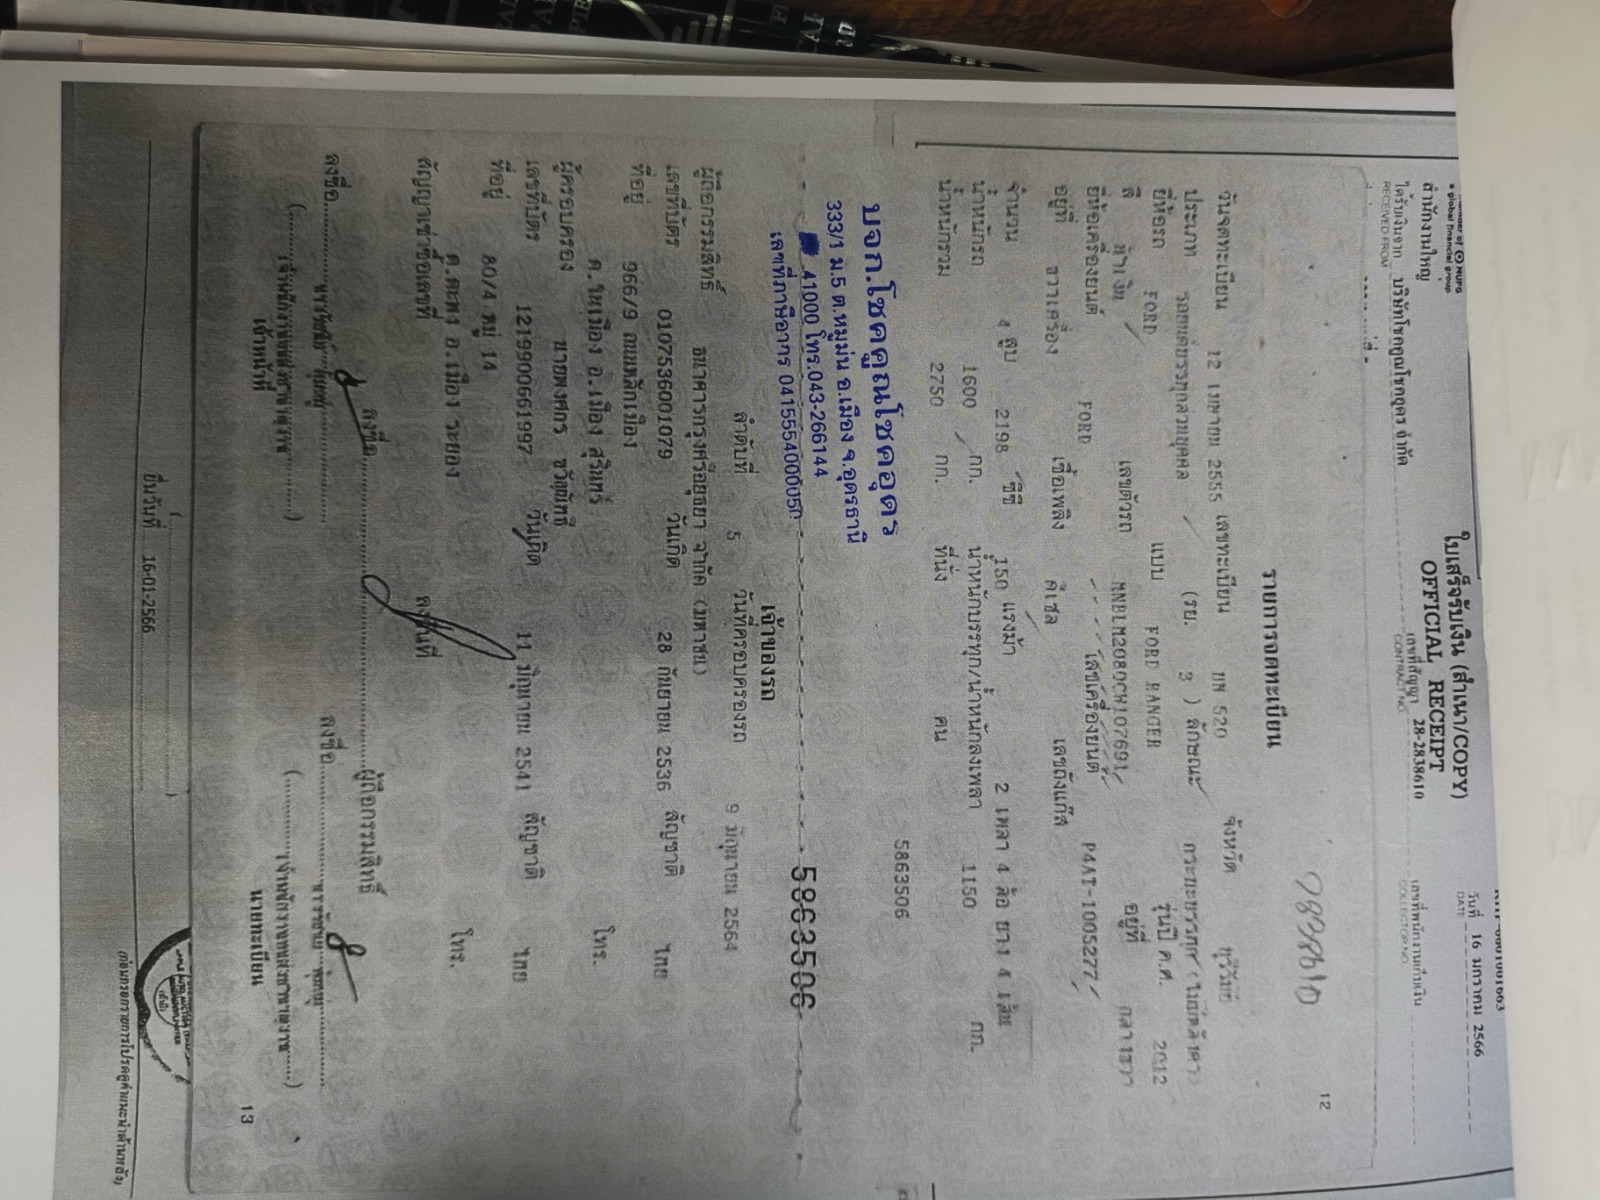 a global financial group
สำนักงานใหญ่
ได้รับเงินจาก บริษัทโชคคูณโชคอุดร จำกัด
RECEIVED FROM
ใบเสร็จรับเงิน (สำเนา/COPY)
OFFICIAL RECEIPT
เลขที่สัญญา 28-2838610
CONTRACT NO.
วันที่ 16 มกราคม 2566
DATE
เลขที่พนักงานเก็บเงิน
COLLECTOR NO.
12
รายการจดทะเบียน
วันจดทะเบียน 12 เมษายน 2555 เลขทะเบียน ยน 520 จังหวัด บุรีรัมย์
ประเภท รถยนต์บรรทุกส่วนบุคคล (รย. 3 ) ลักษณะ กระบะบรรทุก
ยี่ห้อรถ FORD แบบ FORD RANGER รุ่นปี ค.ศ. 2012
สี น้ำเงิน เลขตัวรถ MNBLM2080CW107691 อยู่ที่ กลางขวา
ยี่ห้อเครื่องยนต์ FORD เลขเครื่องยนต์ P4AT-1005277
อยู่ที่ ขวาเครื่อง เชื้อเพลิง ดีเซล เลขถังแก๊ส
จำนวน 4 สูบ 2198 ซีซี 150 แรงม้า 2 เพลา 4 ล้อ ยาง 4 เส้น
น้ำหนักรถ 1600 กก. น้ำหนักบรรทุก/น้ำหนักลงเพลา 1150 กก.
น้ำหนักรวม 2750 กก. ที่นั่ง คน
5863506
บจก.โชคคูณโชคอุดร
333/1 ม.5 ต.หมูม่น อ.เมือง จ.อุดรธานี
41000 โทร.043-266144
เลขที่ภาษีอากร 0415554000050
5863506
เจ้าของรถ
ลำดับที่ 5 วันที่ครอบครองรถ 9 มิถุนายน 2564
ผู้ถือกรรมสิทธิ์ ธนาคารกรุงศรีอยุธยา จำกัด (มหาชน)
เลขที่บัตร 0107536001079 วันเกิด 28 กันยายน 2536 สัญชาติ ไทย
ที่อยู่ 966/9 ถนนหลักเมือง
ต.ในเมือง อ.เมือง สุรินทร์ โทร.
ผู้ครอบครอง นายพงศกร
เลขที่บัตร 1219900661997 วันเกิด 11 มิถุนายน 2541 สัญชาติ ไทย
ที่อยู่ 80/4 หมู่ 14
ต.ตะพง อ.เมือง ระยอง โทร.
สัญญาเช่าซื้อเลขที่ ลงวันที่
ลงชื่อ ผู้ถือกรรมสิทธิ์
ลงชื่อ
ลงชื่อ
เจ้าหน้าที่
นายทะเบียน
13
ยื่นวันที่ 16-01-2566